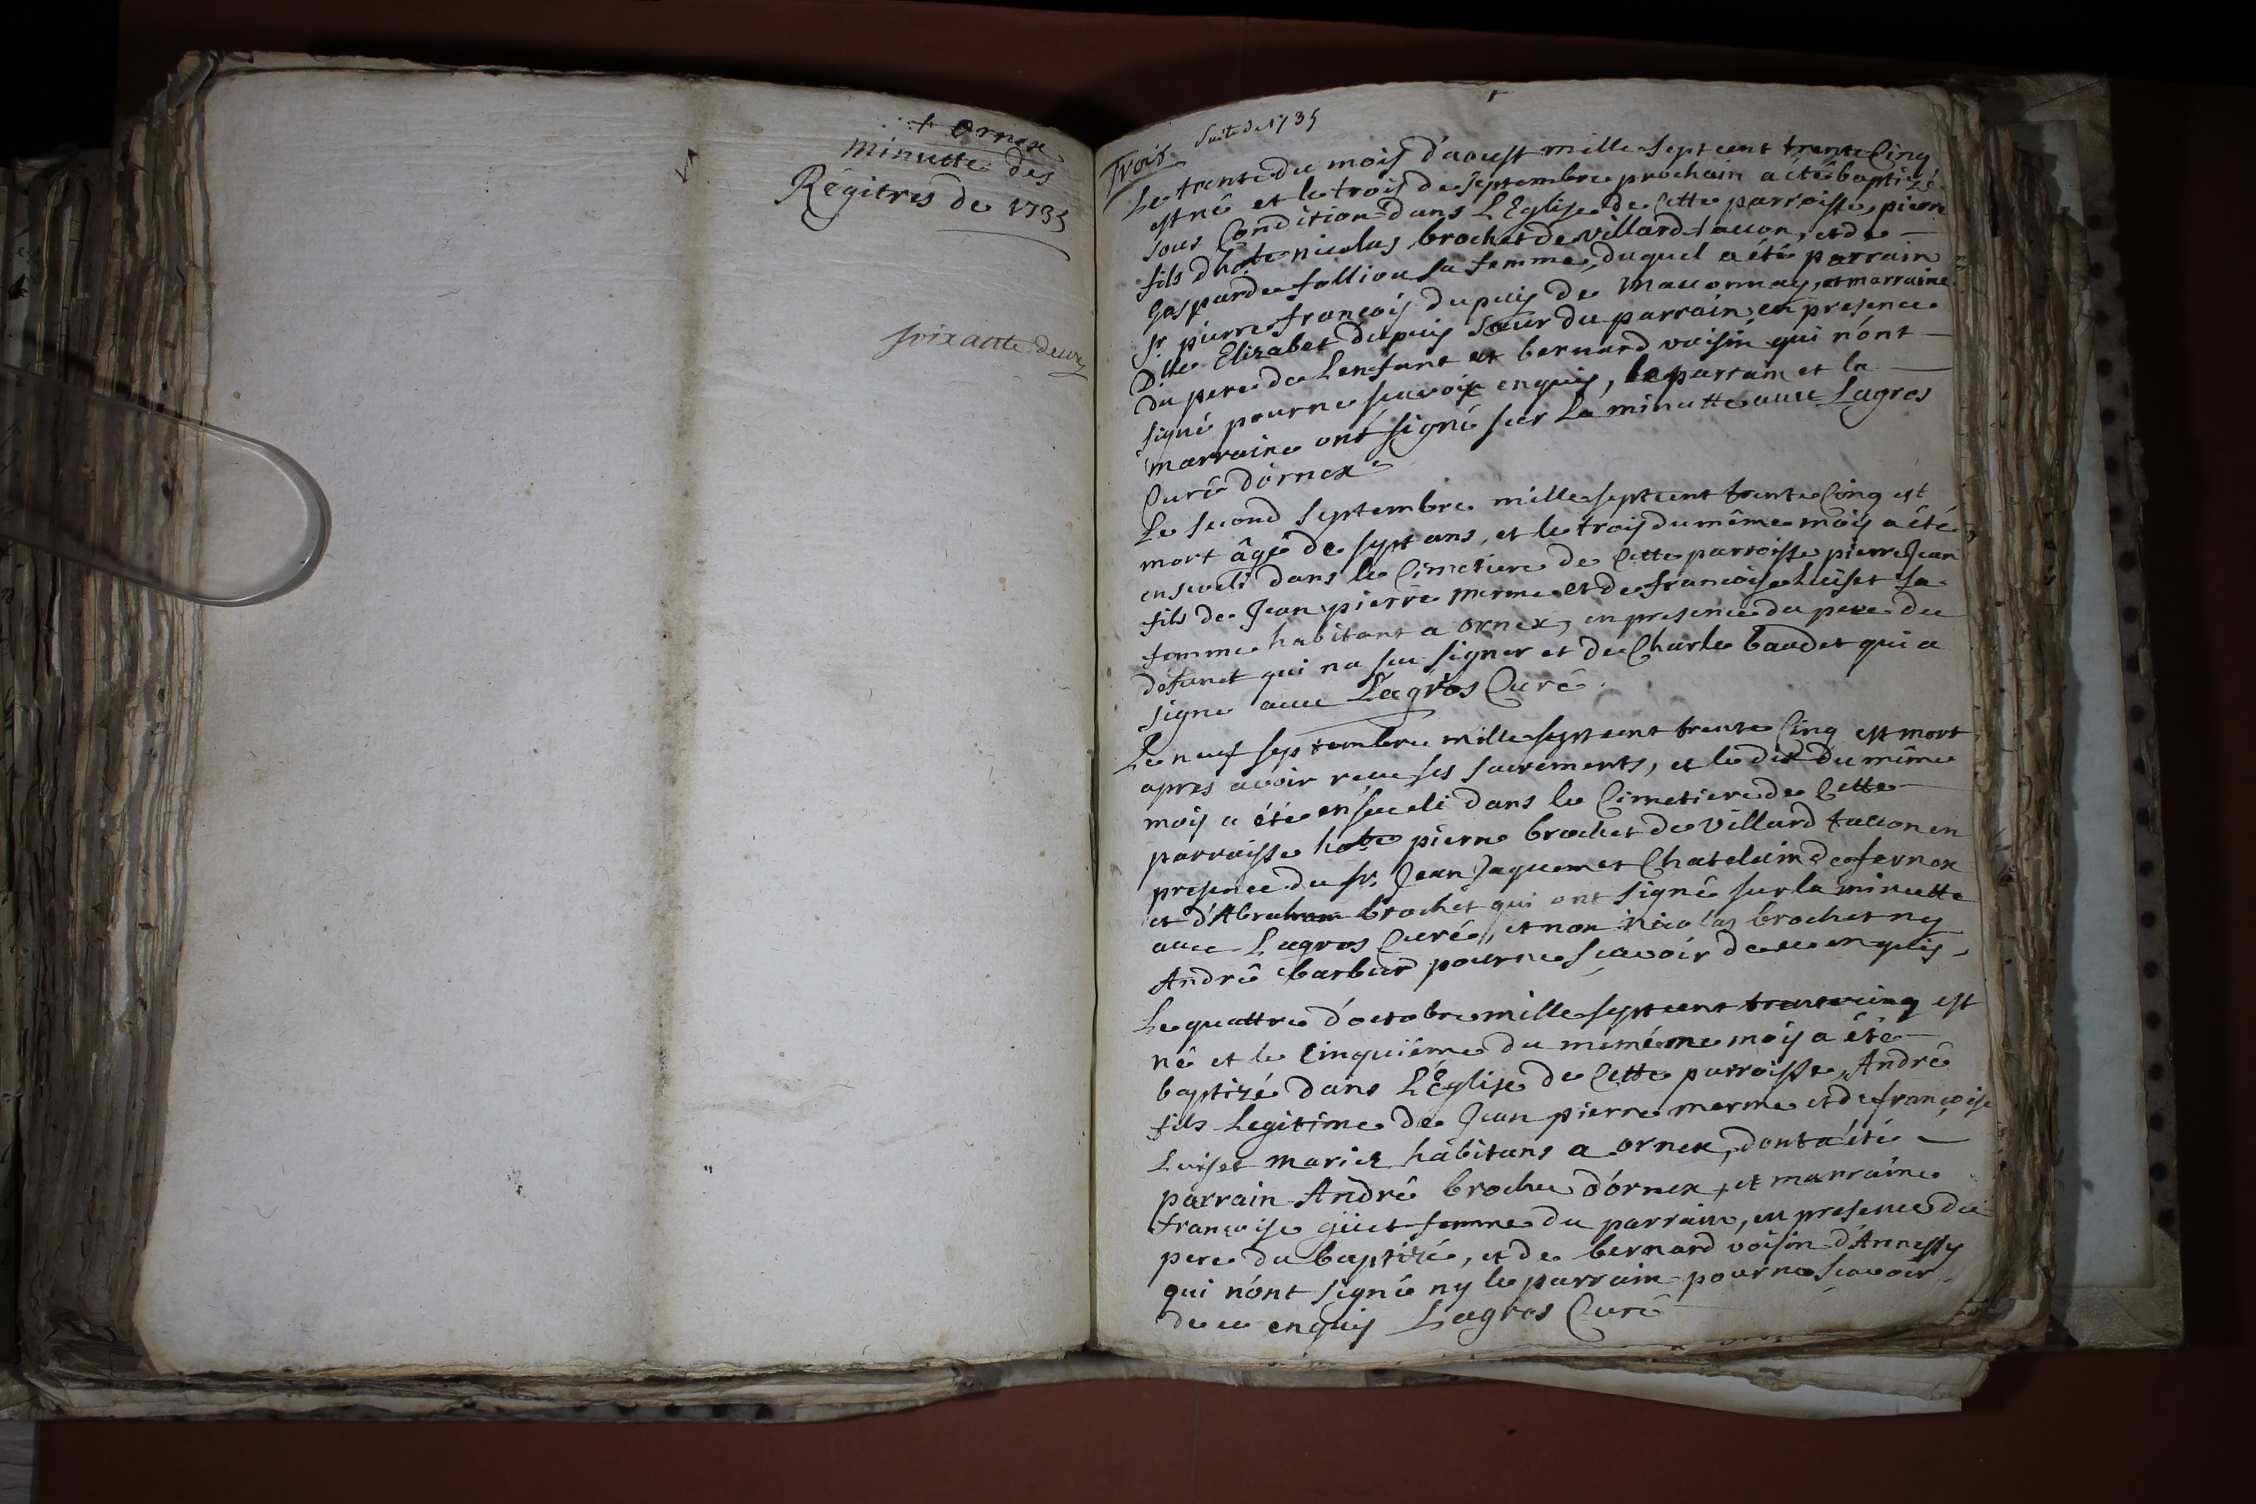 + Ornex
minutte des
Régitres de 1735
soixante deux
Suite de 1735
Trois
Le trente du mois d'aoust mille sept cent trente Cinq
est né et le trois de septembre prochain a été baptizé
sous Condition dans L'Eglise de Cette parroisse, pierre
fils d'hoble nicolas brochet de villard taccon, et de
Gasparde folliou sa femme, duquel a été parrain
Sr. pierre françois dupuis de maconnay, et marraine
Dlle Elizabet dupuis sœur du parrain, en presence
du pere de L'enfant et bernard voisin qui n'ont
signé pour ne scavoir enquis, le parrain et la
marraine ont signé sur La minutte avec Lagros
Curé d'ornex
Le second septembre mille sept cent trente Cinq est
mort âgé de sept ans, et le trois du même mois a été
enseveli dans le Cimetiere de Cette parroisse pierre Jean
fils de Jean pierre merme et de françoise Luiset sa
femme habitant a ornex, en presence du pere du
defunct qui na sçu signer et de Charle baudet qui a
signe avec Lagros Curé.
Le neuf septembre mille sept cent trente Cinq est mort
apres avoir receu ses sacrements, et le dix du même
mois a été enseveli dans le Cimetiere de Cette
parroisse hoble pierre brochet de villard taccon en
presence du Sr. Jean Jaquemet Chatelain de fernex
et d'Abraham brochet qui ont signé sur la minutte
avec Lagros Curé, et non nicolas brochet ny
André barbier pour ne scavoir de ce enquis.
Le quattre d'octobre mille sept cent trente cinq est
né et le Cinquiéme du memême mois a été
baptizé dans L'Église de Cette parroisse, André
fils Legitime de Jean pierre merme et de françoise
Luiset mariez habitans a ornex, dont a été
parrain André brochu d'ornex, et marraine
françoise güet femme du parrain, en presence du
pere du baptizé, et de bernard voisin d'Annessy
qui n'ont signé ny le parrain pour ne scavoir
de ce enquis Lagros Curé